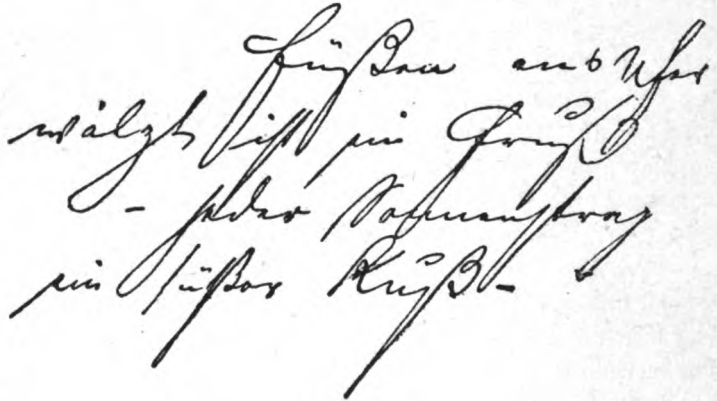 Füßen ans Ufer
wälzt ist ein Gruß
- jeder Sonnenstrag
ein süßer Kuß -